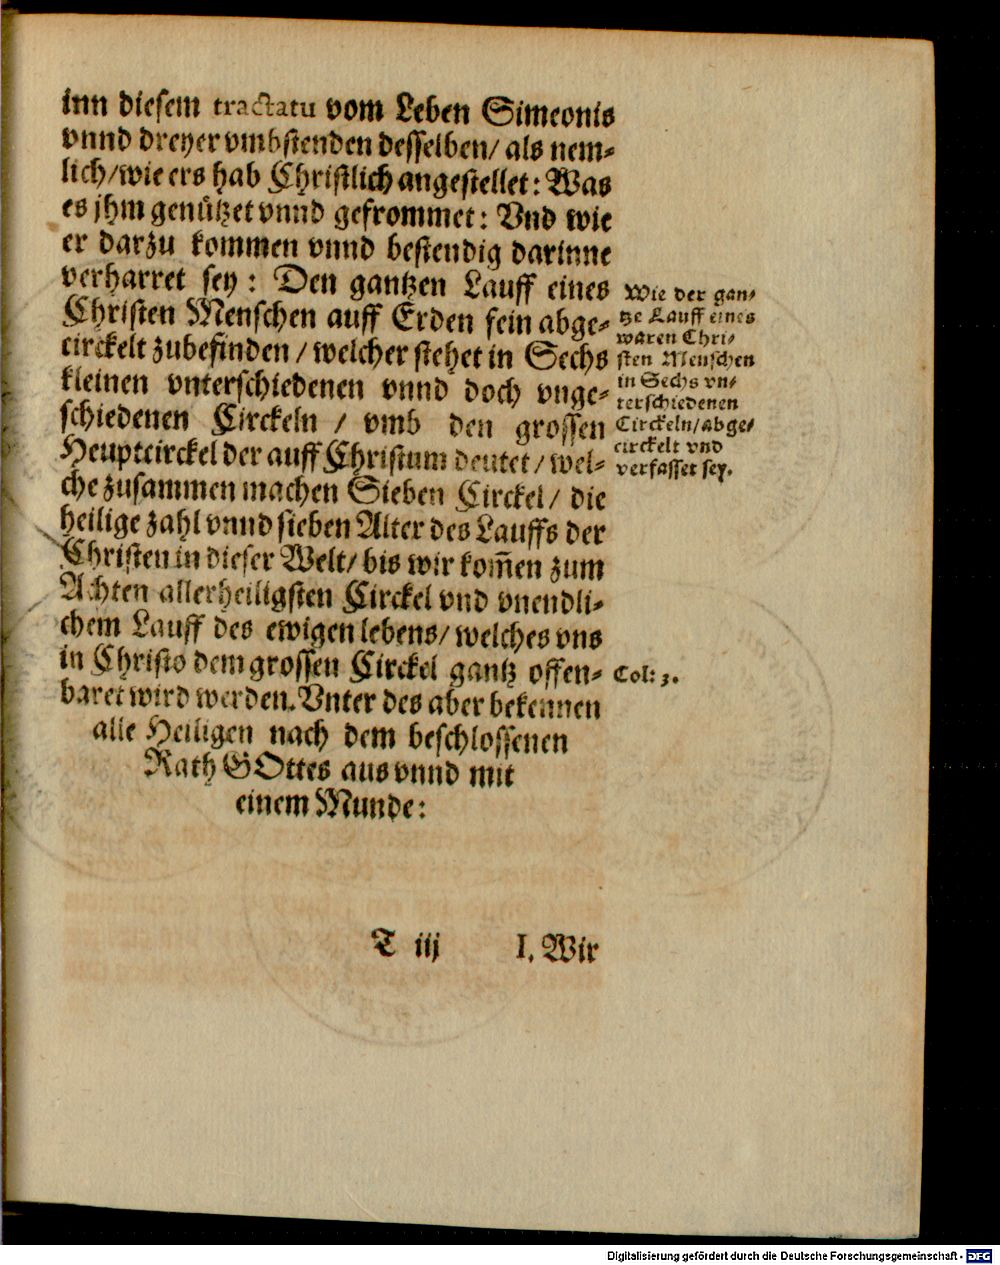 inn diesem tractatu vom Leben Simeonis
vnnd dreyer vmbstenden desselben/ als nem-
lich/wie ers hab Christlich angestellet: Was
es jhm genützet vnnd gefrommet: Vnd wie
er darzu kommen vnnd bestendig darinne
verharret sey: Den gantzen Lauff eines
Christen Menschen auff Erden fein abge-
circkelt zubefinden/ welcher stehet in Sechs
kleinen vnterschiedenen vnnd doch vnge-
schiedenen Circkeln / vmb den grossen
Heuptcirckel der auff Christum deutet/ wel-
che zusammen machen Sieben Circkel/ die
heilige zahl vnnd sieben Alter des Lauffs der
Christen in dieser Welt/ bis wir kom̃en zum
Achten allerheiligsten Circkel vnd vnendli-
chem Lauff des ewigen lebens/ welches vns
in Christo dem grossen Circkel gantz offen-
baret wird werden. Vnter des aber bekennen
alle Heiligen nach dem beschlossenen
Rath GOttes aus vnnd mit
einem Munde:
Wie der gan-
tze Lauff eines
waren Chri-
sten Menschen
in Sechs vn-
terschiedenen
Circkeln/abge-
circkelt vnd
verfasset sey.
Col: 3.
T iij I. Wir
Digitalisierung gefördert durch die Deutsche Forschungsgemeinschaft - DFG